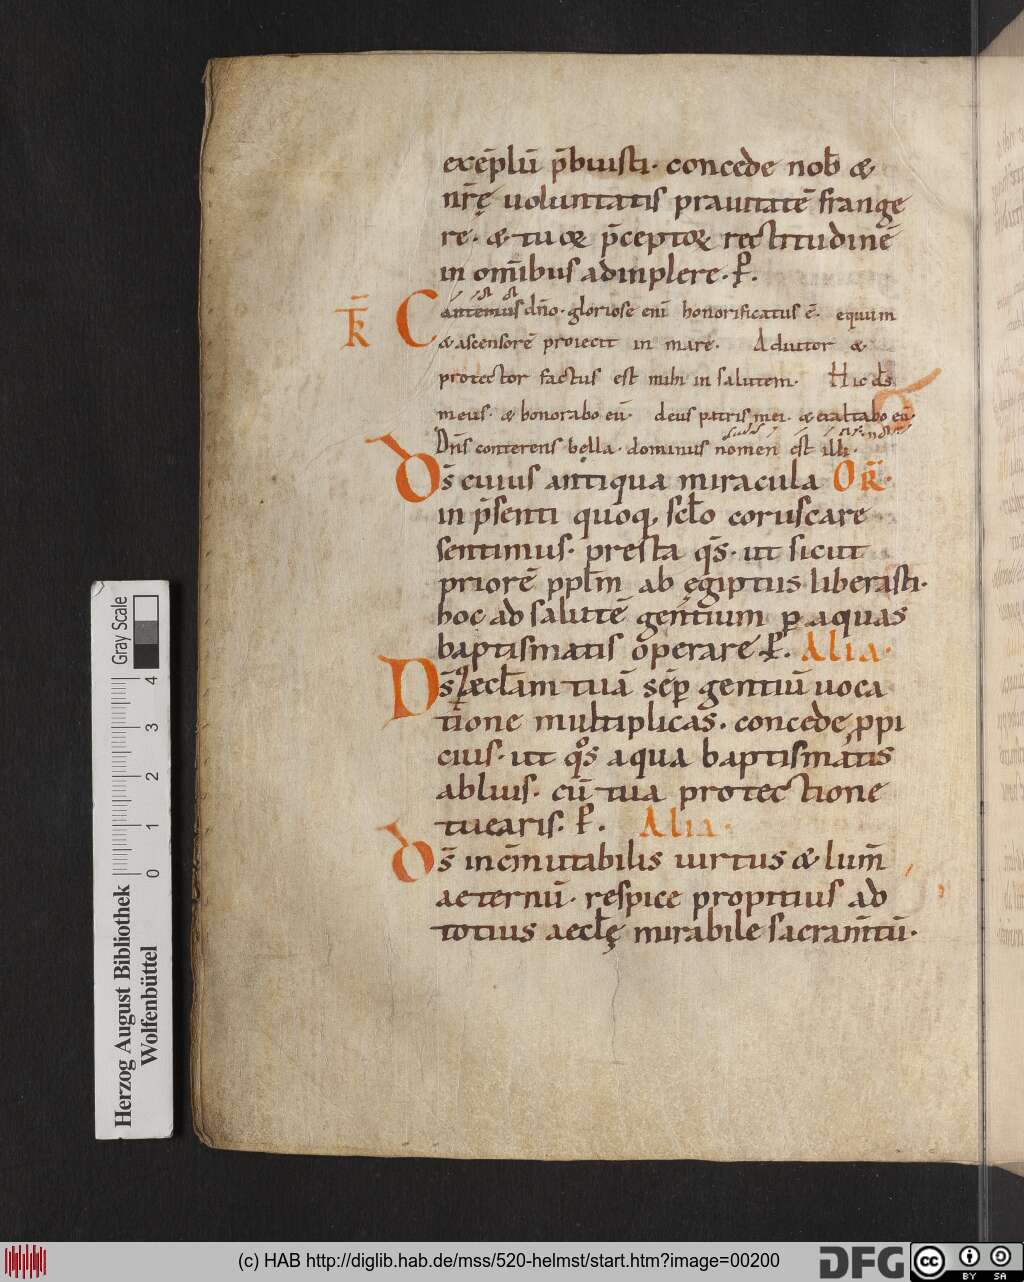 exēplū p̄buisti· concede nob̄ &
nr̄ę uoluntatis prauitatē frange
re· & tuoꝝ p̄ceptoꝝ rectitudinē
in om̄ibus adinplere· P̄.
TR̄ Cantemus dn̄o· gloriose eni͞ honorificatus ē· equum
& ascensorē proiecit in mare· Adiutor &
protector factus est mihi in salutem· Hic ds̄
meus· & honorabo eū· deus patris mei· & exaltabo eū·
Dn̄s conterens bella· dominus nomen est illi·
Ds̄ cuius antiqua miracula OR̄·
in p̄senti quoq, sc̄lo coruscare
sentimus· presta qs̄· ut sicut
priorē ppl̄m ab ęgiptiis liberasti·
hoc ad salutē gentium ꝑ aquas
baptismatis operare P̄. Alia·
Ds̄ q aeccl̄am tuā sēꝑ gentiū uoca
tione multiplicas̄· concede ꝓpi
cius· ut qͦs aqua baptismatis
abluis· cū tua protectione
tuearis· P̄. Alia·
Ds̄ incm̄utabilis uirtus & lum̄
aeternū· respice propitius ad
totius aeccl̄ę mirabile sacram̄tū·
Gray Scale
4 3 2 1 0
Herzog August Bibliothek
Wolfenbüttel
(c) HAB http://diglib.hab.de/mss/520-helmst/start.htm?image=00200
DFG
cc BY SA